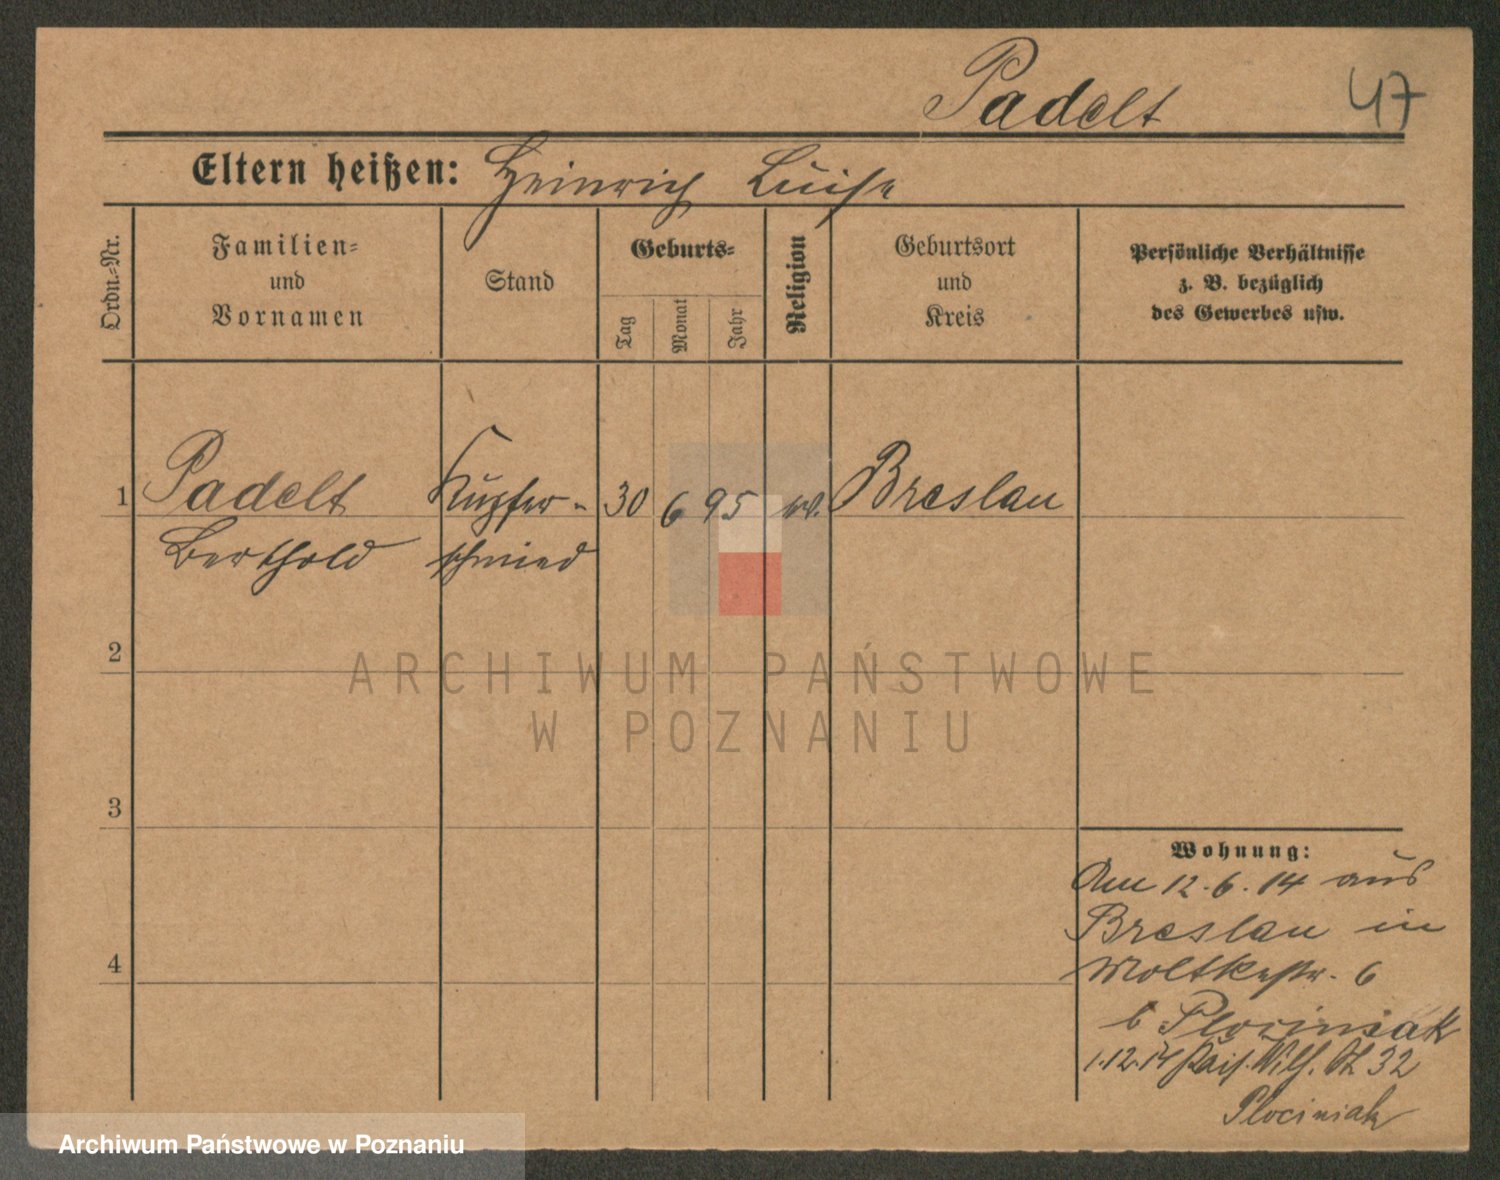 Padelt 47
Eltern heißen: Heinrich Luise
Ordn.-Nr.
Familien-
und
Vornamen
Stand
Geburts-
Tag
Monat
Jahr
Religion
Geburtsort
und
Kreis
Persönliche Verhältnisse
z. B. bezüglich
des Gewerbes usw.
1 Padelt Kupfer- 30 6 95 ev. Breslau
Berthold schmied
2
3
4
Wohnung:
Am 12.6.14 aus
Breslau in
Moltkestr. 6
b Plociniak
1.12.14 Kais. Wilh. St. 32
Plociniak
ARCHIWUM PAŃSTWOWE
W POZNANIU
Archiwum Państwowe w Poznaniu